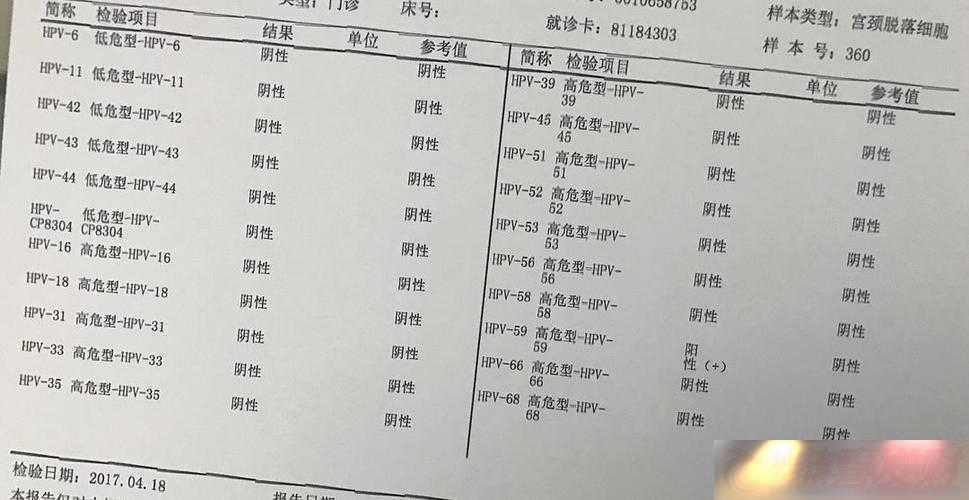 门诊 床号: 样本类型: 宫颈脱落细胞
就诊卡: 81184303 样 本 号: 360
简称 检验项目 结果 单位 参考值
HPV-6 低危型-HPV-6 阴性 阴性
HPV-11 低危型-HPV-11 阴性 阴性
HPV-42 低危型-HPV-42 阴性 阴性
HPV-43 低危型-HPV-43 阴性 阴性
HPV-44 低危型-HPV-44 阴性 阴性
HPV- 低危型-HPV- 阴性 阴性
CP8304 CP8304
HPV-16 高危型-HPV-16 阴性 阴性
HPV-18 高危型-HPV-18 阴性 阴性
HPV-31 高危型-HPV-31 阴性 阴性
HPV-33 高危型-HPV-33 阴性 阴性
HPV-35 高危型-HPV-35 阴性 阴性
简称 检验项目 结果 单位 参考值
HPV-39 高危型-HPV- 阴性 阴性
39
HPV-45 高危型-HPV- 阴性 阴性
45
HPV-51 高危型-HPV- 阴性 阴性
51
HPV-52 高危型-HPV- 阴性 阴性
52
HPV-53 高危型-HPV- 阴性 阴性
53
HPV-56 高危型-HPV- 阴性 阴性
56
HPV-58 高危型-HPV- 阴性 阴性
58
HPV-59 高危型-HPV- 阳 阴性
59 性(+)
HPV-66 高危型-HPV- 阴性 阴性
66
HPV-68 高危型-HPV- 阴性 阴性
68
检验日期: 2017.04.18